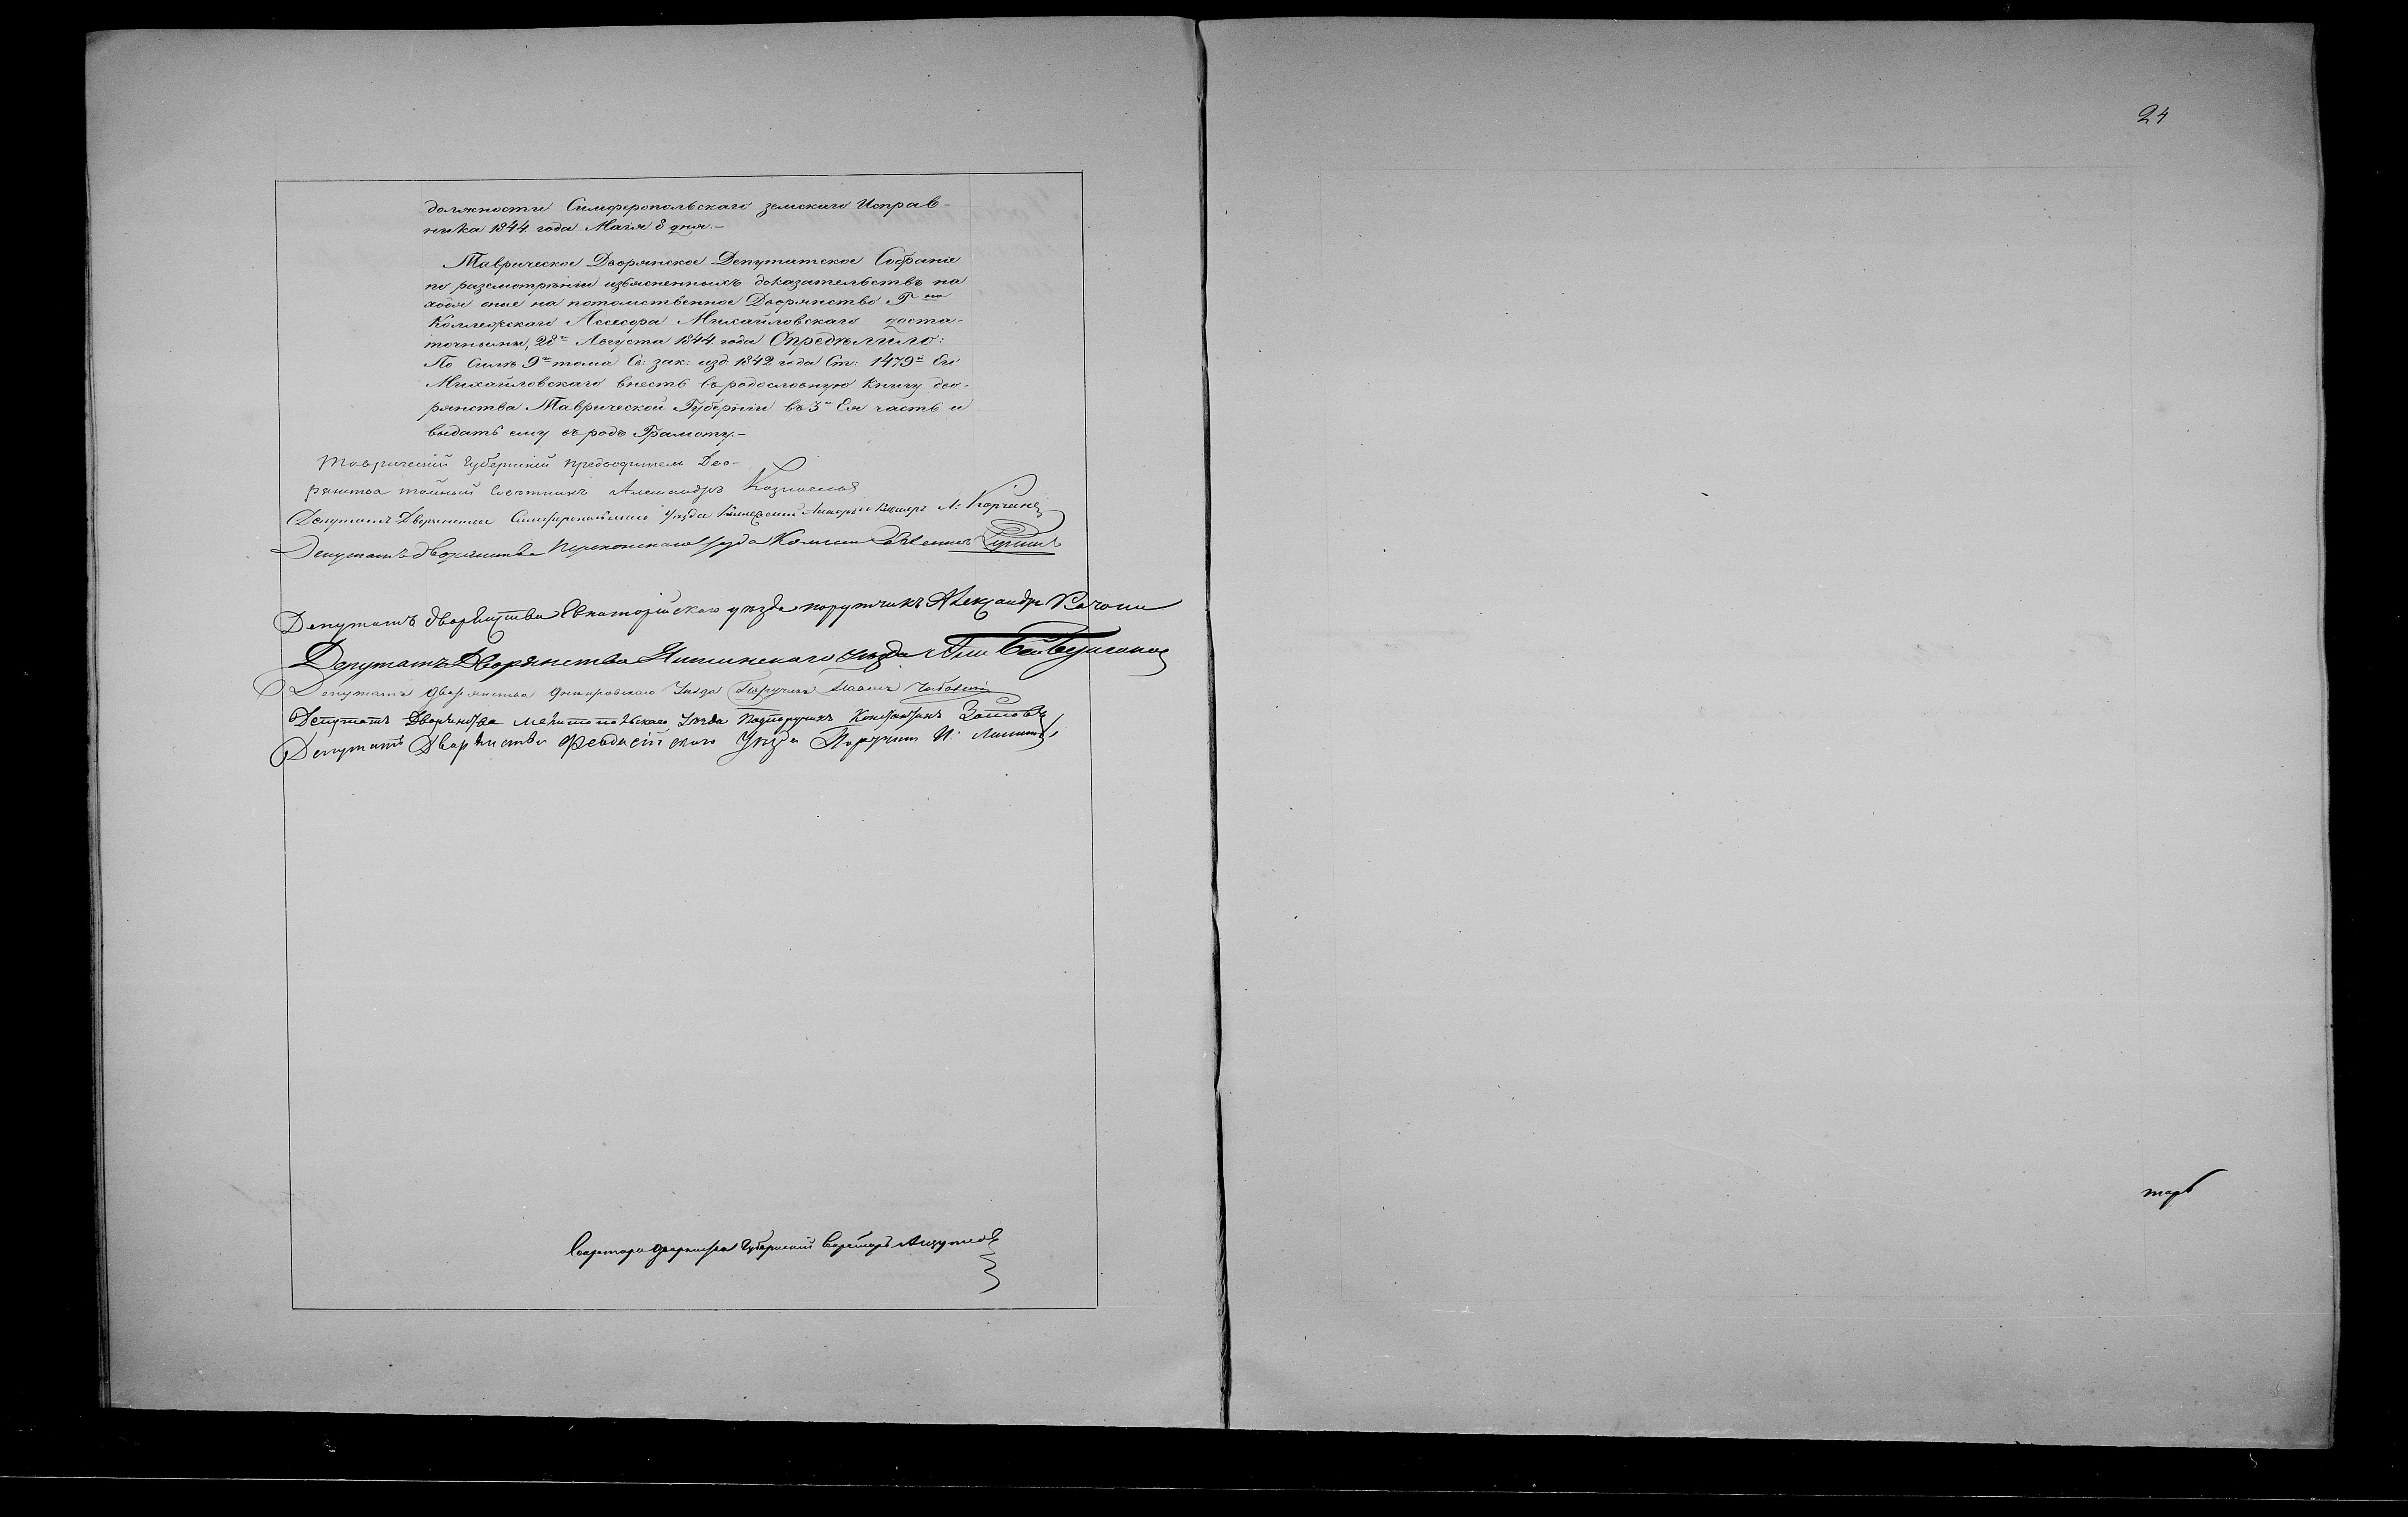 должности Симферопольскаго земскаго Исправ-
ника 1844 года Маія 8 дня.-
Таврическое Дворянское Депутатское Собраніе
по разсмотрѣніи изъясненныхъ доказательствъ на
ходя оные на потомственное Дворянство Г на
Коллежскаго Ассесора Михайловскаго доста-
точными, 28 Августа 1844 года Опредѣлило:
По Силѣ 9 тома Св: зак: изд. 1842 года Ст: 1479 Его
Михайловскаго внесть въ родословную Книгу дво-
рянства Таврической Губерніи въ 3 Ея часть и
выдать ему въ родъ Грамоту.-
Таврическій Губернскій предводитель Дво-
рянства тайный Совѣтникъ Александръ Казначеевъ
Депутатъ Дворянства Симферопольскаго Уѣзда
Депутатъ дворянства Перекопскаго уѣзда
Депутатъ дворянства Евпаторійскаго уѣзда порутчикъ Александръ
Депутатъ Дворянства Ялтинскаго уѣзда Али Бей
Депутатъ дворянства Днѣпровскаго Уѣзда Поручикъ
Депутатъ Дворянства Мелитопольскаго Уѣзда Подпоручикъ Константинъ Зотовъ
Депутатъ Дворянства Феодосійскаго Уѣзда Поручикъ
Секретарь дворянства Губернскій Секретарь
24
тарь